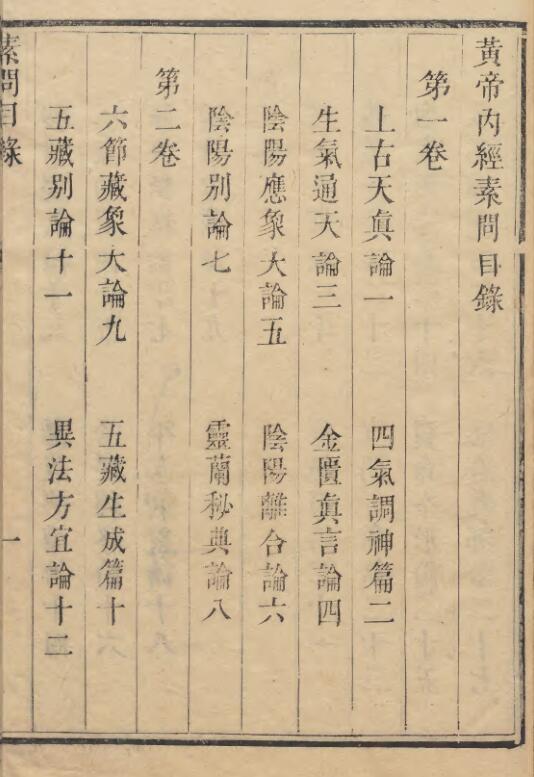 黃帝內經素問目錄
第一卷
上古天眞論一　四氣調神篇二
生氣通天論三　金匱眞言論四
陰陽應象大論五　陰陽離合論六
陰陽別論七　靈蘭秘典論八
第二卷
六節藏象大論九　五藏生成篇十
五藏別論十一　異法方宜論十二
素問目錄　一